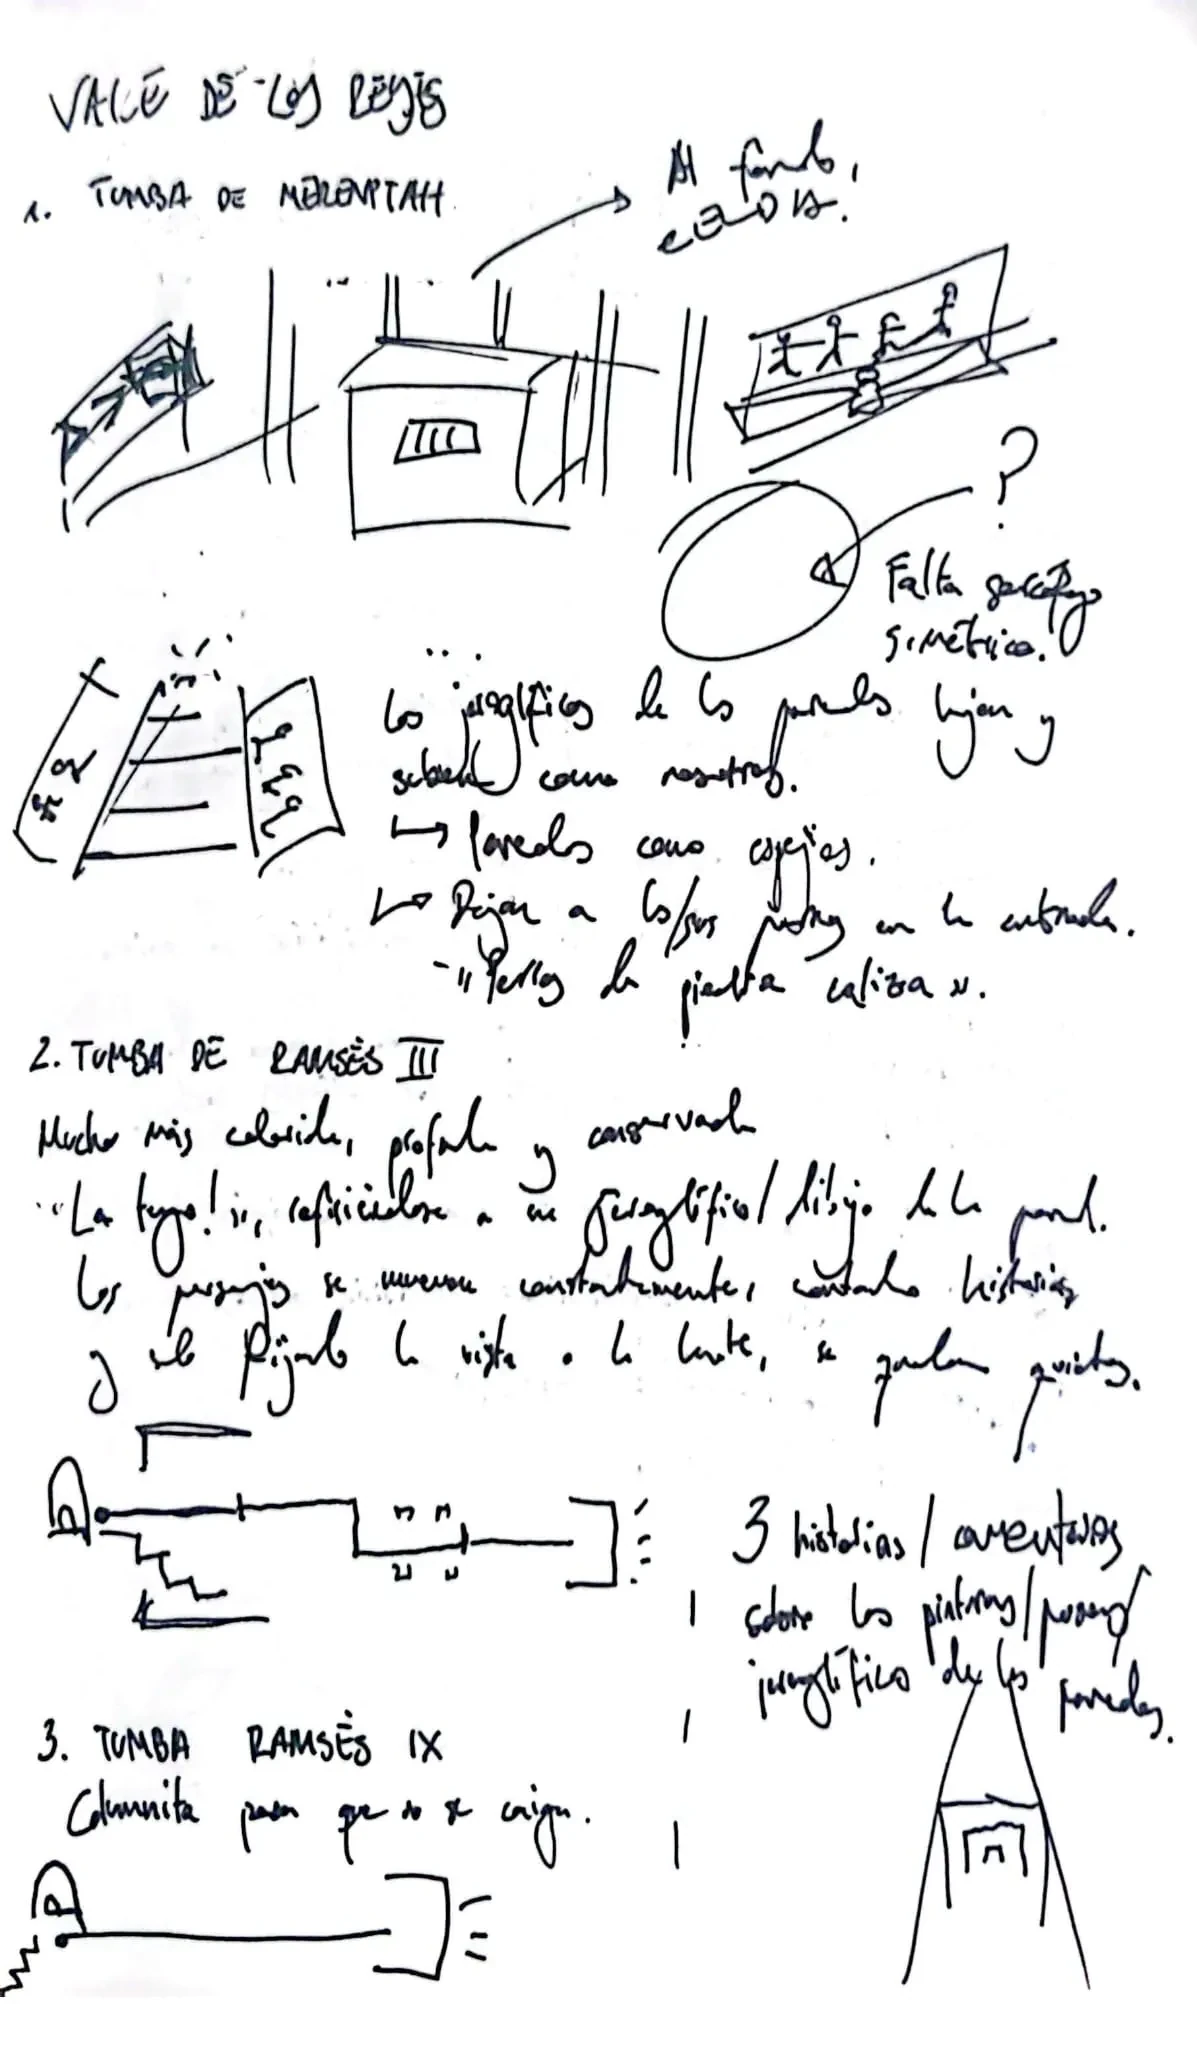 VALLE DE LOS REYES
1. TUMBA DE MERENPTAH
Al fondo,
?
Falta sarcófago
simétrico.
Los jeroglíficos de las paredes bajan y
suben como nosotros.
↳ Paredes como espejos.
↳ Dejan a los/sus perros en la entrada.
- "Perros de piedra caliza".
2. TUMBA DE RAMSÉS III
Mucho más colorida, profunda y conservada
"La tengo!", refiriéndose a un jeroglífico/dibujo de la pared.
Los personajes se mueven constantemente, contando historias
y solo fijando la vista o la lente, se quedan quietos.
3 historias / aventuras
sobre las pinturas/
jeroglífico de las paredes.
3. TUMBA RAMSÉS IX
Columnita para que no se caiga.